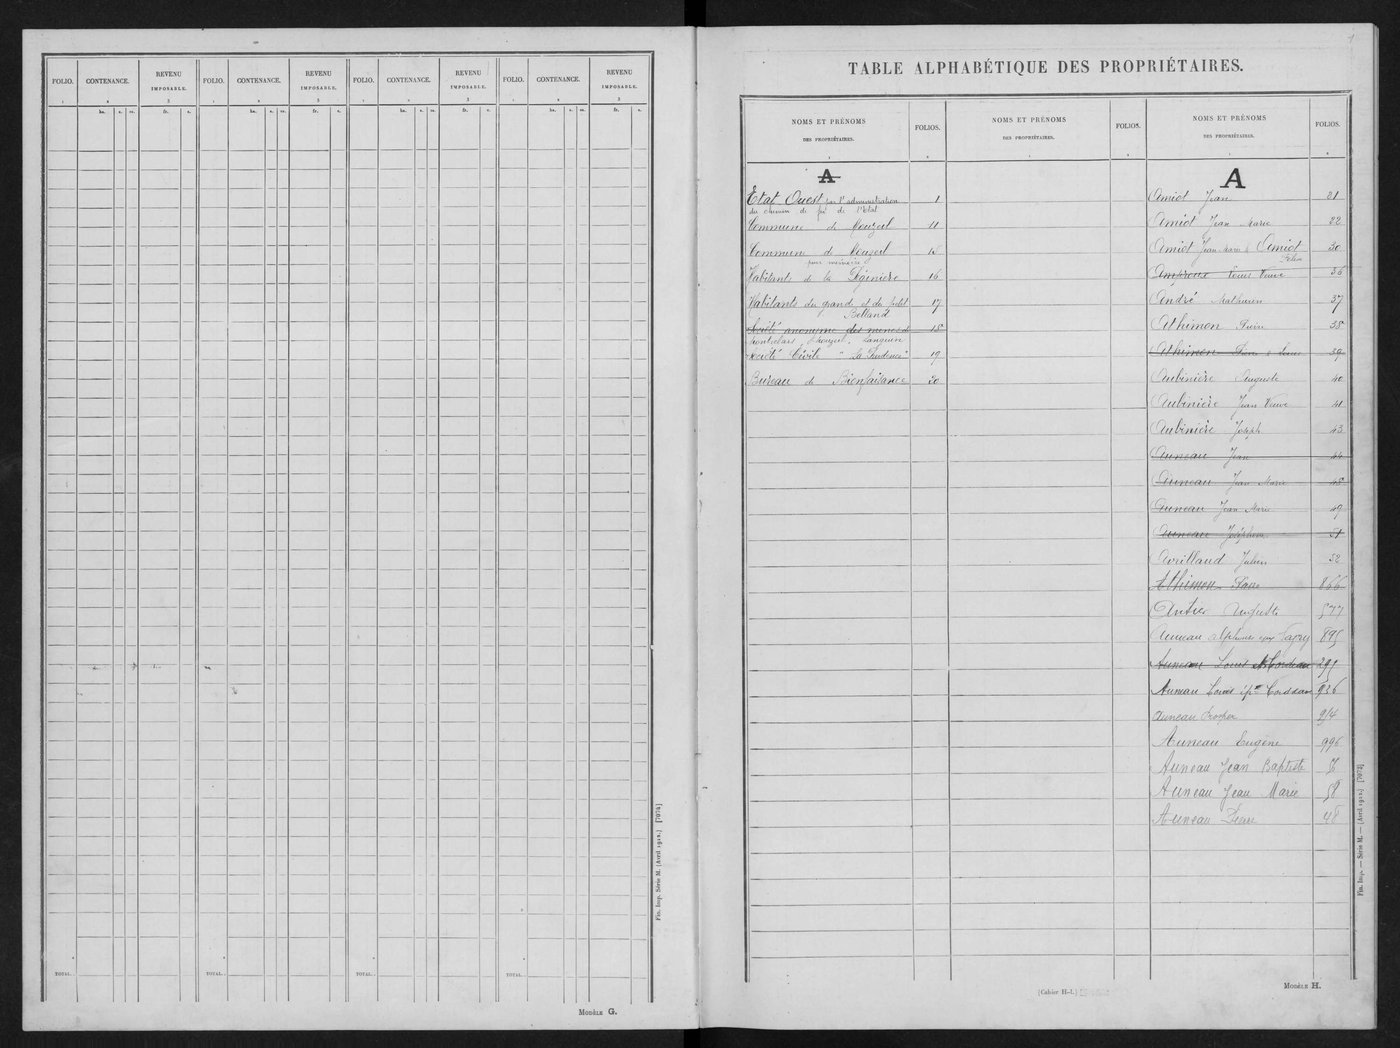 FOLIO. CONTENANCE. REVENU IMPOSABLE. FOLIO. CONTENANCE. REVENU IMPOSABLE. FOLIO. CONTENANCE. REVENU IMPOSABLE. FOLIO. CONTENANCE. REVENU IMPOSABLE.
1 2 3 1 2 3 1 2 3 1 2 3
ha. a. ca. fr. c. ha. a. ca. fr. c. ha. a. ca. fr. c. ha. a. ca. fr. c.
TOTAL. TOTAL. TOTAL. TOTAL.
Fin. Imp. Série M. (Avril 1912.) [7072]
MODÈLE G.
TABLE ALPHABÉTIQUE DES PROPRIÉTAIRES.
NOMS ET PRÉNOMS DES PROPRIÉTAIRES. FOLIOS. NOMS ET PRÉNOMS DES PROPRIÉTAIRES. FOLIOS. NOMS ET PRÉNOMS DES PROPRIÉTAIRES. FOLIOS.
A
Etat Ouest par l'administration 1
du chemin de fer de l'Etat
Commune de Mouzeil 11
Commune de Mouzeil 15
pour mémoire
Habitants de la 16
Habitants du grand et du petit 17
Belland
Société anonyme des mines de 18
Montrelais, Mouzeil, Languin
Société Civile "La Prudence" 19
Bureau de Bienfaisance 20
A
Amiot Jean 21
Amiot Jean Marie 22
Amiot Jean Marie & Amiot 30
Félix
Veuve 36
André Mathurin 37
Athimon Pierre 38
Athimon Pierre & Louis 39
Aubinière Auguste 40
Aubinière Jean Veuve 41
Aubinière Joseph 43
Auneau Jean 44
Auneau Jean Marie 45
Auneau Jean Marie 49
Auneau Joséphine 51
Avrilland Julien 52
Athimon 866
Antier Auguste 577
Auneau Alphonse 895
Auneau Louis 291
Auneau Louis 936
Auneau Prosper 954
Auneau Eugène 996
Auneau Jean Baptiste
Auneau Jean Marie 58
Auneau Pierre 48
[Cahier H-1.]
MODÈLE H.
Fin. Imp. — Série M. — (Avril 1912.) [7073]